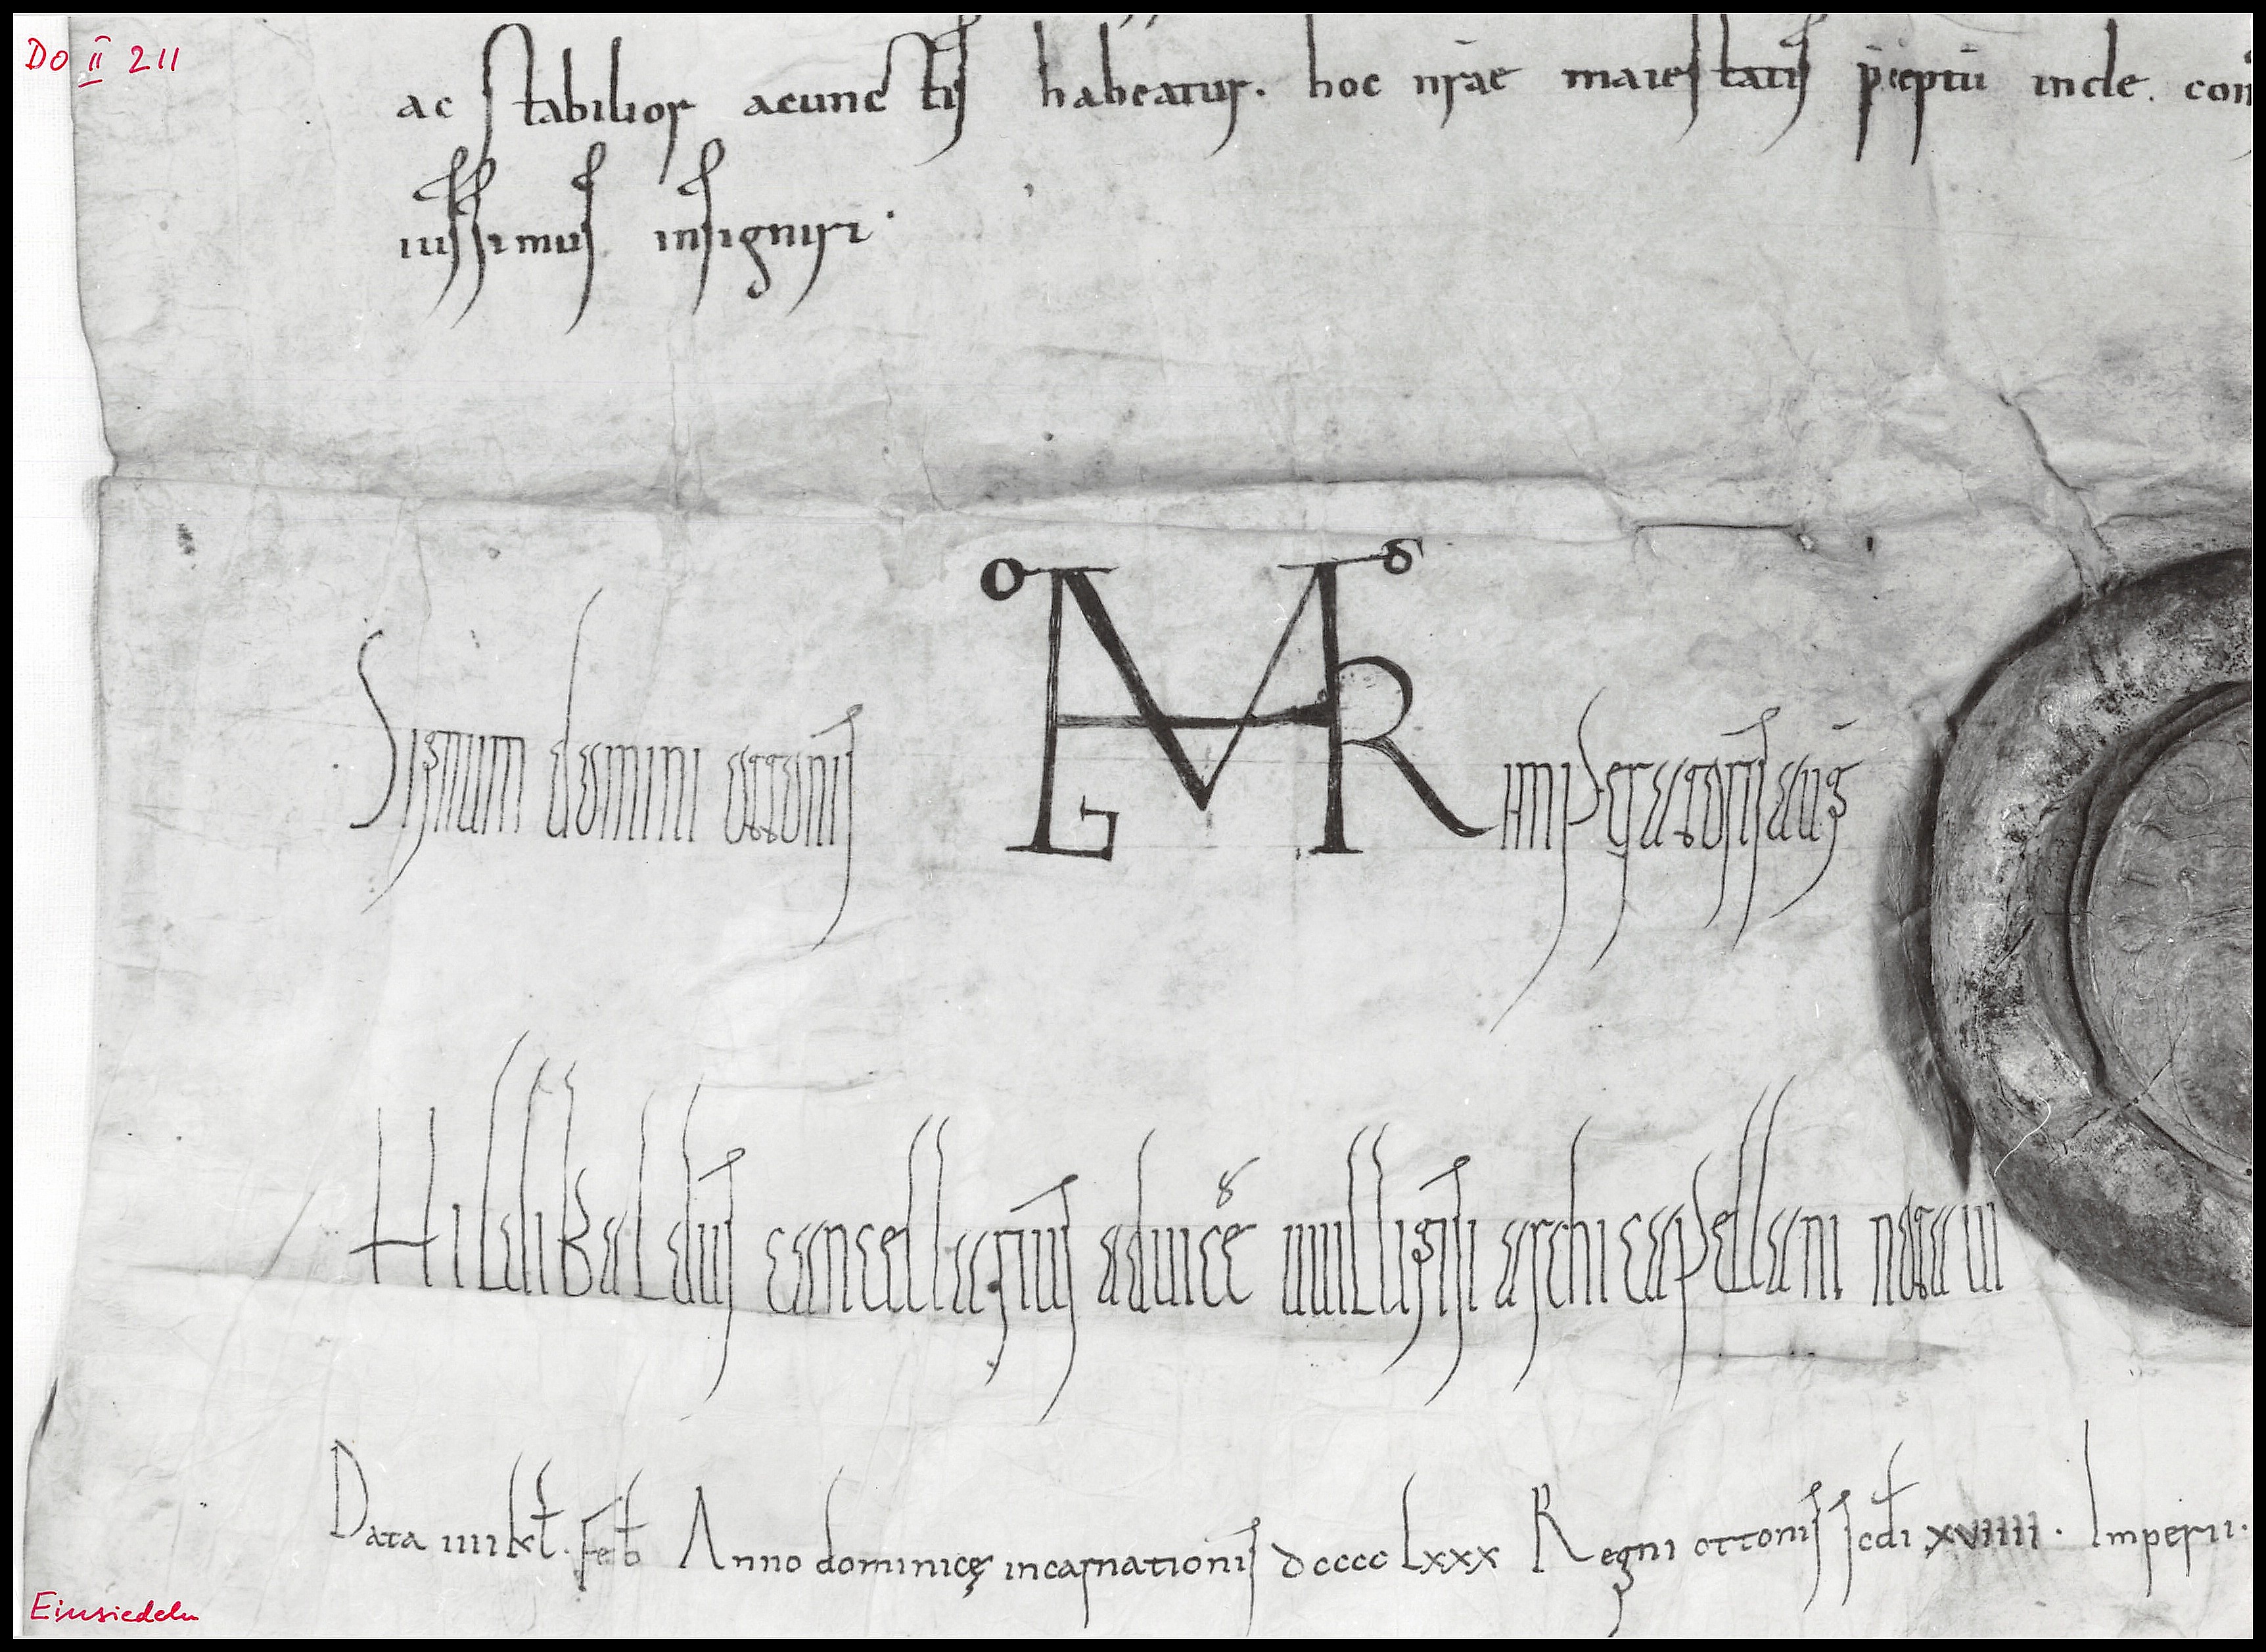 DO II 211
ac stabilior acunctis habeatur. hoc nr̄ae maiestatis p̄ceptū inde. con
iussimus insigniri.
Signum domini ottonis imperatoris auḡ
Hildibaldus cancellarius aduicē uuilligisi archicapellani notaui
Data iiii kł. Feb Anno dominicę incarnationis dcccc Lxxx Regni ottonis scđi xviiii. Imperii.
Einsiedeln